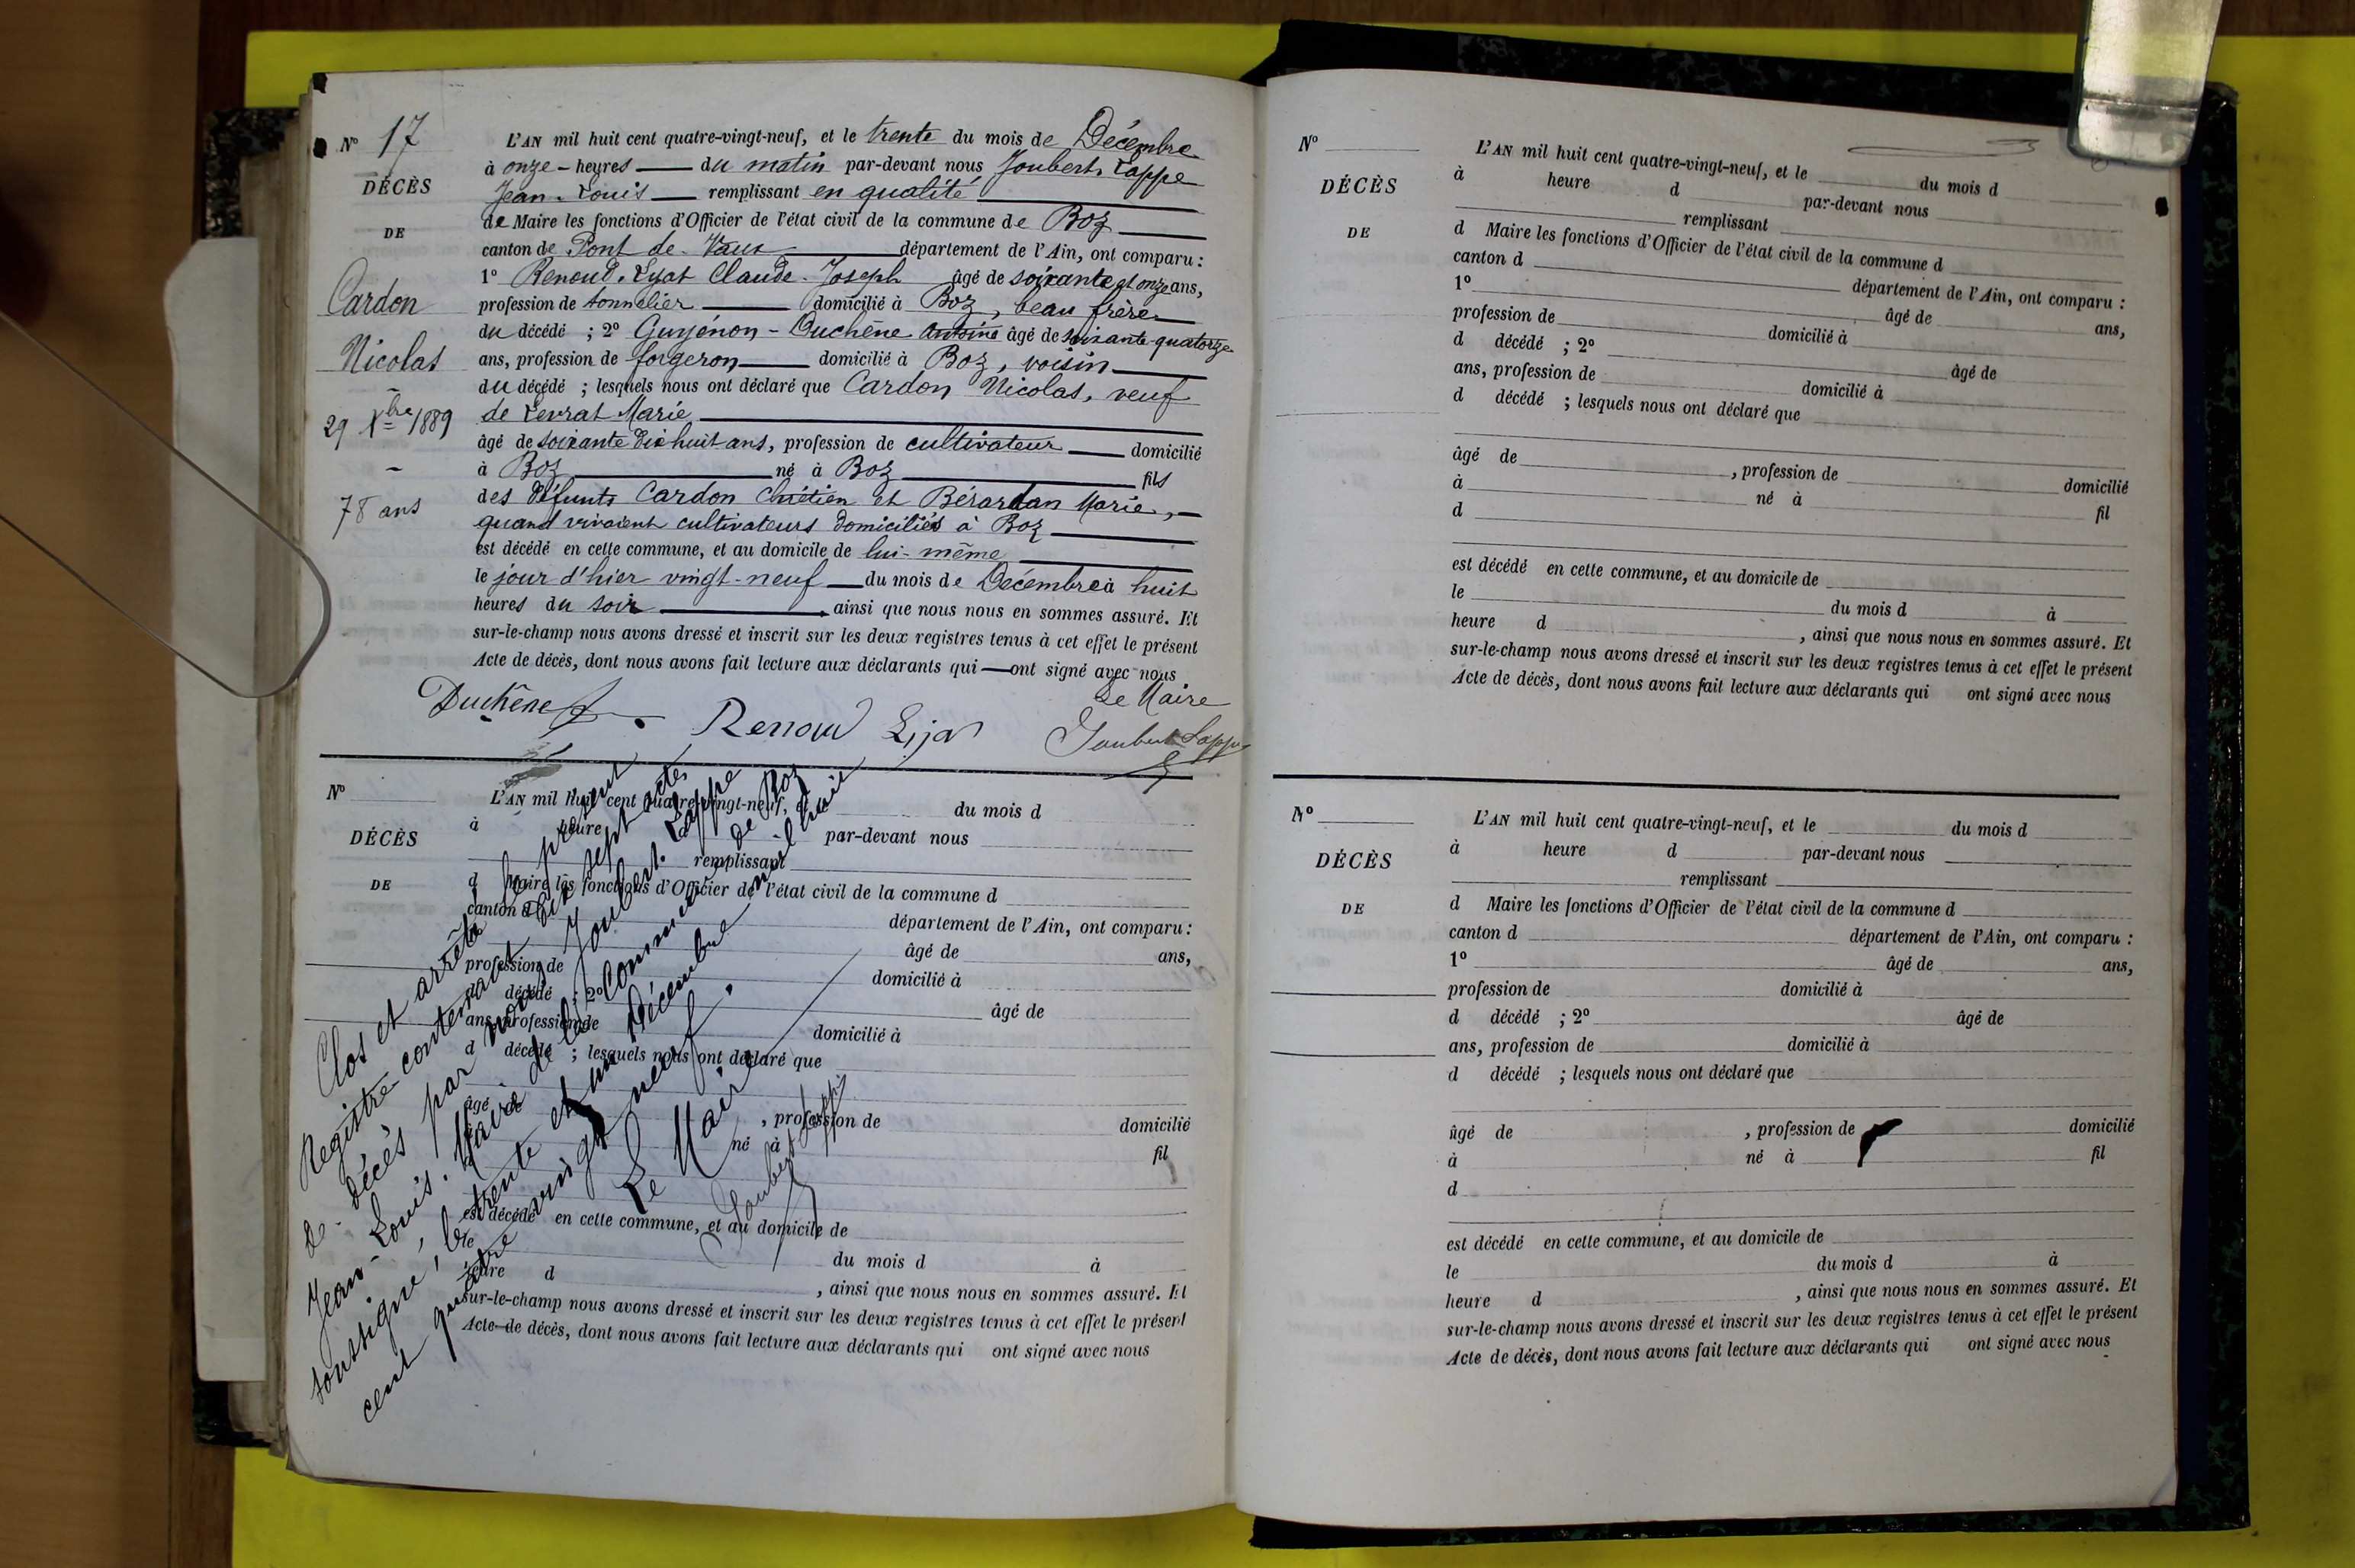 N° 17
DÉCÈS
DE
Cardon
Nicolas
29 Xbre 1889
78 ans
L'AN mil huit cent quatre-vingt-neuf, et le trente du mois de Décembre
à onze - heures — du matin par-devant nous Joubert, Lappe
Jean-Louis — remplissant en qualité
de Maire les fonctions d'Officier de l'état civil de la commune de Boz
canton de Pont-de-Vaux département de l'Ain, ont comparu :
1° Renoud-Lyat Claude-Joseph âgé de soixante et onze ans,
profession de tonnelier — domicilié à Boz, beau frère
du décédé ; 2° Guyénon-Duchêne Antoine âgé de soixante-quatorze
ans, profession de forgeron — domicilié à Boz, voisin
du décédé ; lesquels nous ont déclaré que Cardon Nicolas, veuf
de Levrat Marie
âgé de soixante dix huit ans, profession de cultivateur — domicilié
à Boz né à Boz fils
des défunts Cardon Chrétien et Bérardan Marie,
quand vivaient cultivateurs domiciliés à Boz
est décédé en cette commune, et au domicile de lui-même
le jour d'hier vingt-neuf — du mois de Décembre à huit
heures du soir — ainsi que nous nous en sommes assuré. Et
sur-le-champ nous avons dressé et inscrit sur les deux registres tenus à cet effet le présent
Acte de décès, dont nous avons fait lecture aux déclarants qui — ont signé avec nous
Le Maire
Duchêne Renoud Lija Joubert Lappe
N°
DÉCÈS
DE
L'AN mil huit cent quatre-vingt-neuf, du mois d
à heure par-devant nous
remplissant
d Maire les fonctions d'Officier de l'état civil de la commune d
canton d département de l'Ain, ont comparu :
âgé de ans,
profession de domicilié à
d décédé ; 2° âgé de
ans, profession de domicilié à
d décédé ; lesquels nous ont déclaré que
âgé de , profession de domicilié
né à fil
est décédé en cette commune, et au domicile de
le du mois d à
heure d , ainsi que nous nous en sommes assuré. Et
sur-le-champ nous avons dressé et inscrit sur les deux registres tenus à cet effet le présent
Acte de décès, dont nous avons fait lecture aux déclarants qui ont signé avec nous
Clos et arrêté le présent
Registre contenant dix sept actes
de décès par nous Joubert. Lappe
Jean-Louis. Maire de la Commune de Boz
soussigné, le trente et un Décembre mil huit
cent quatre vingt neuf.
Le Maire
Joubert Lappe
N°
DÉCÈS
DE
L'AN mil huit cent quatre-vingt-neuf, et le du mois d
à heure d par-devant nous
remplissant
d Maire les fonctions d'Officier de l'état civil de la commune d
canton d département de l'Ain, ont comparu :
1° âgé de ans,
profession de domicilié à
d décédé ; 2° âgé de
ans, profession de domicilié à
d décédé ; lesquels nous ont déclaré que
âgé de , profession de domicilié
à né à fil
d
est décédé en cette commune, et au domicile de
le du mois d à
heure d , ainsi que nous nous en sommes assuré. Et
sur-le-champ nous avons dressé et inscrit sur les deux registres tenus à cet effet le présent
Acte de décès, dont nous avons fait lecture aux déclarants qui ont signé avec nous
N°
DÉCÈS
DE
L'AN mil huit cent quatre-vingt-neuf, et le du mois d
à heure d par-devant nous
remplissant
d Maire les fonctions d'Officier de l'état civil de la commune d
canton d département de l'Ain, ont comparu :
1° âgé de ans,
profession de domicilié à
d décédé ; 2° âgé de
ans, profession de domicilié à
d décédé ; lesquels nous ont déclaré que
âgé de , profession de domicilié
à né à fil
d
est décédé en cette commune, et au domicile de
le du mois d à
heure d , ainsi que nous nous en sommes assuré. Et
sur-le-champ nous avons dressé et inscrit sur les deux registres tenus à cet effet le présent
Acte de décès, dont nous avons fait lecture aux déclarants qui ont signé avec nous